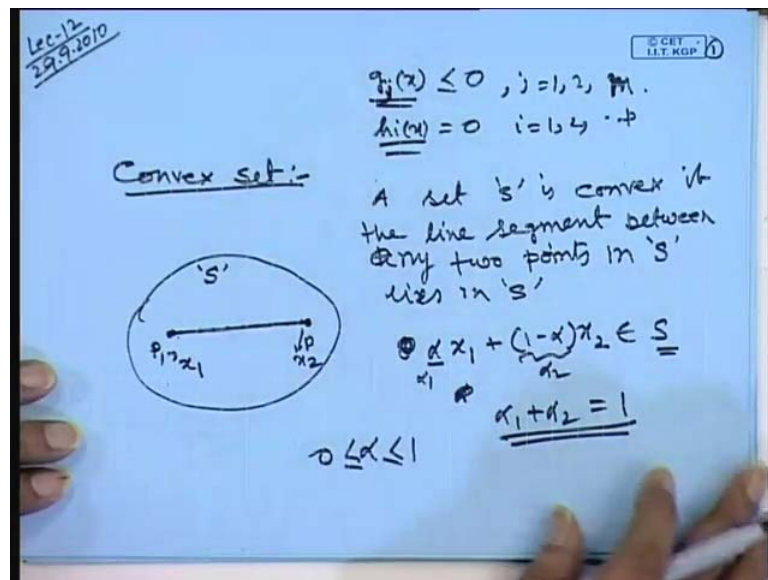 Lec-12
29.9.2010
© CET
I.I.T. KGP
1
gj(x) ≤ 0 , j=1, 2, m.
hi(x) = 0 i=1, 2, ..p
Convex set:-
A set 's' is convex if
the line segment between
any two points in 's'
lies in 's'
's'
P1, x1
P
x2
α x1 + (1-α) x2 ∈ S
α1
α2
α1 + α2 = 1
0 ≤ α ≤ 1